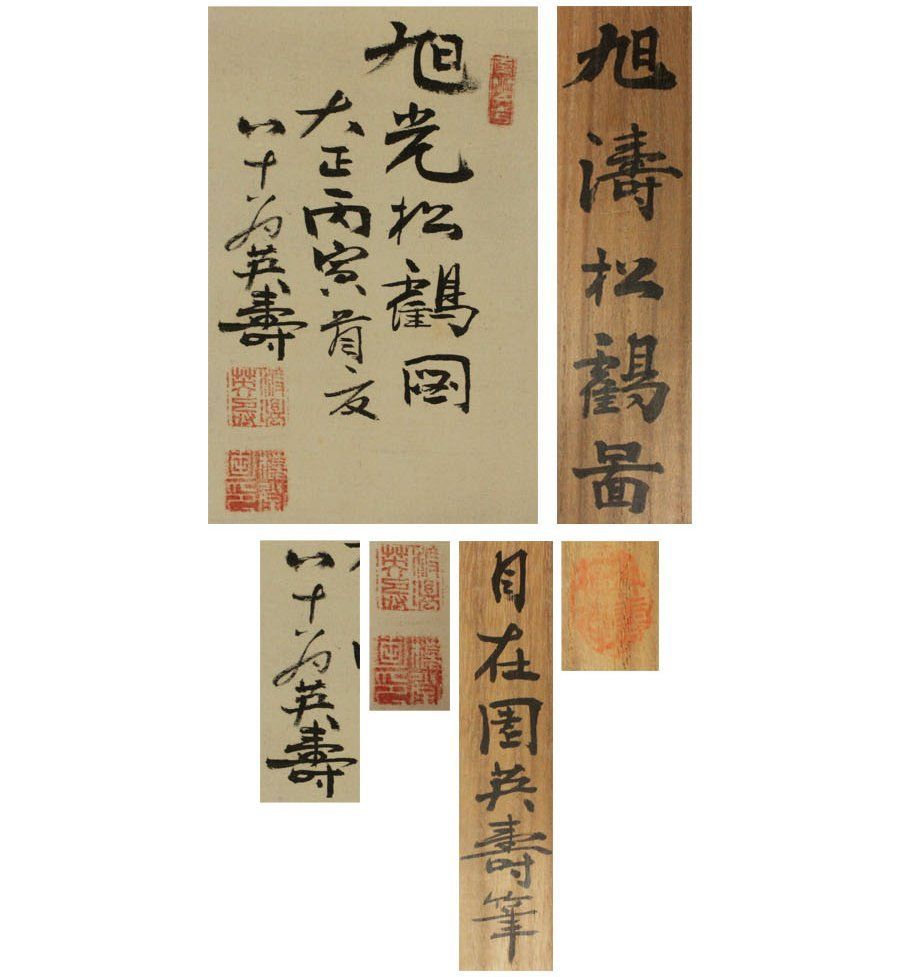 旭光松鶴図
大正丙寅首夏
八十翁英壽
旭濤松鶴圖
八十翁英壽
自在園英壽筆